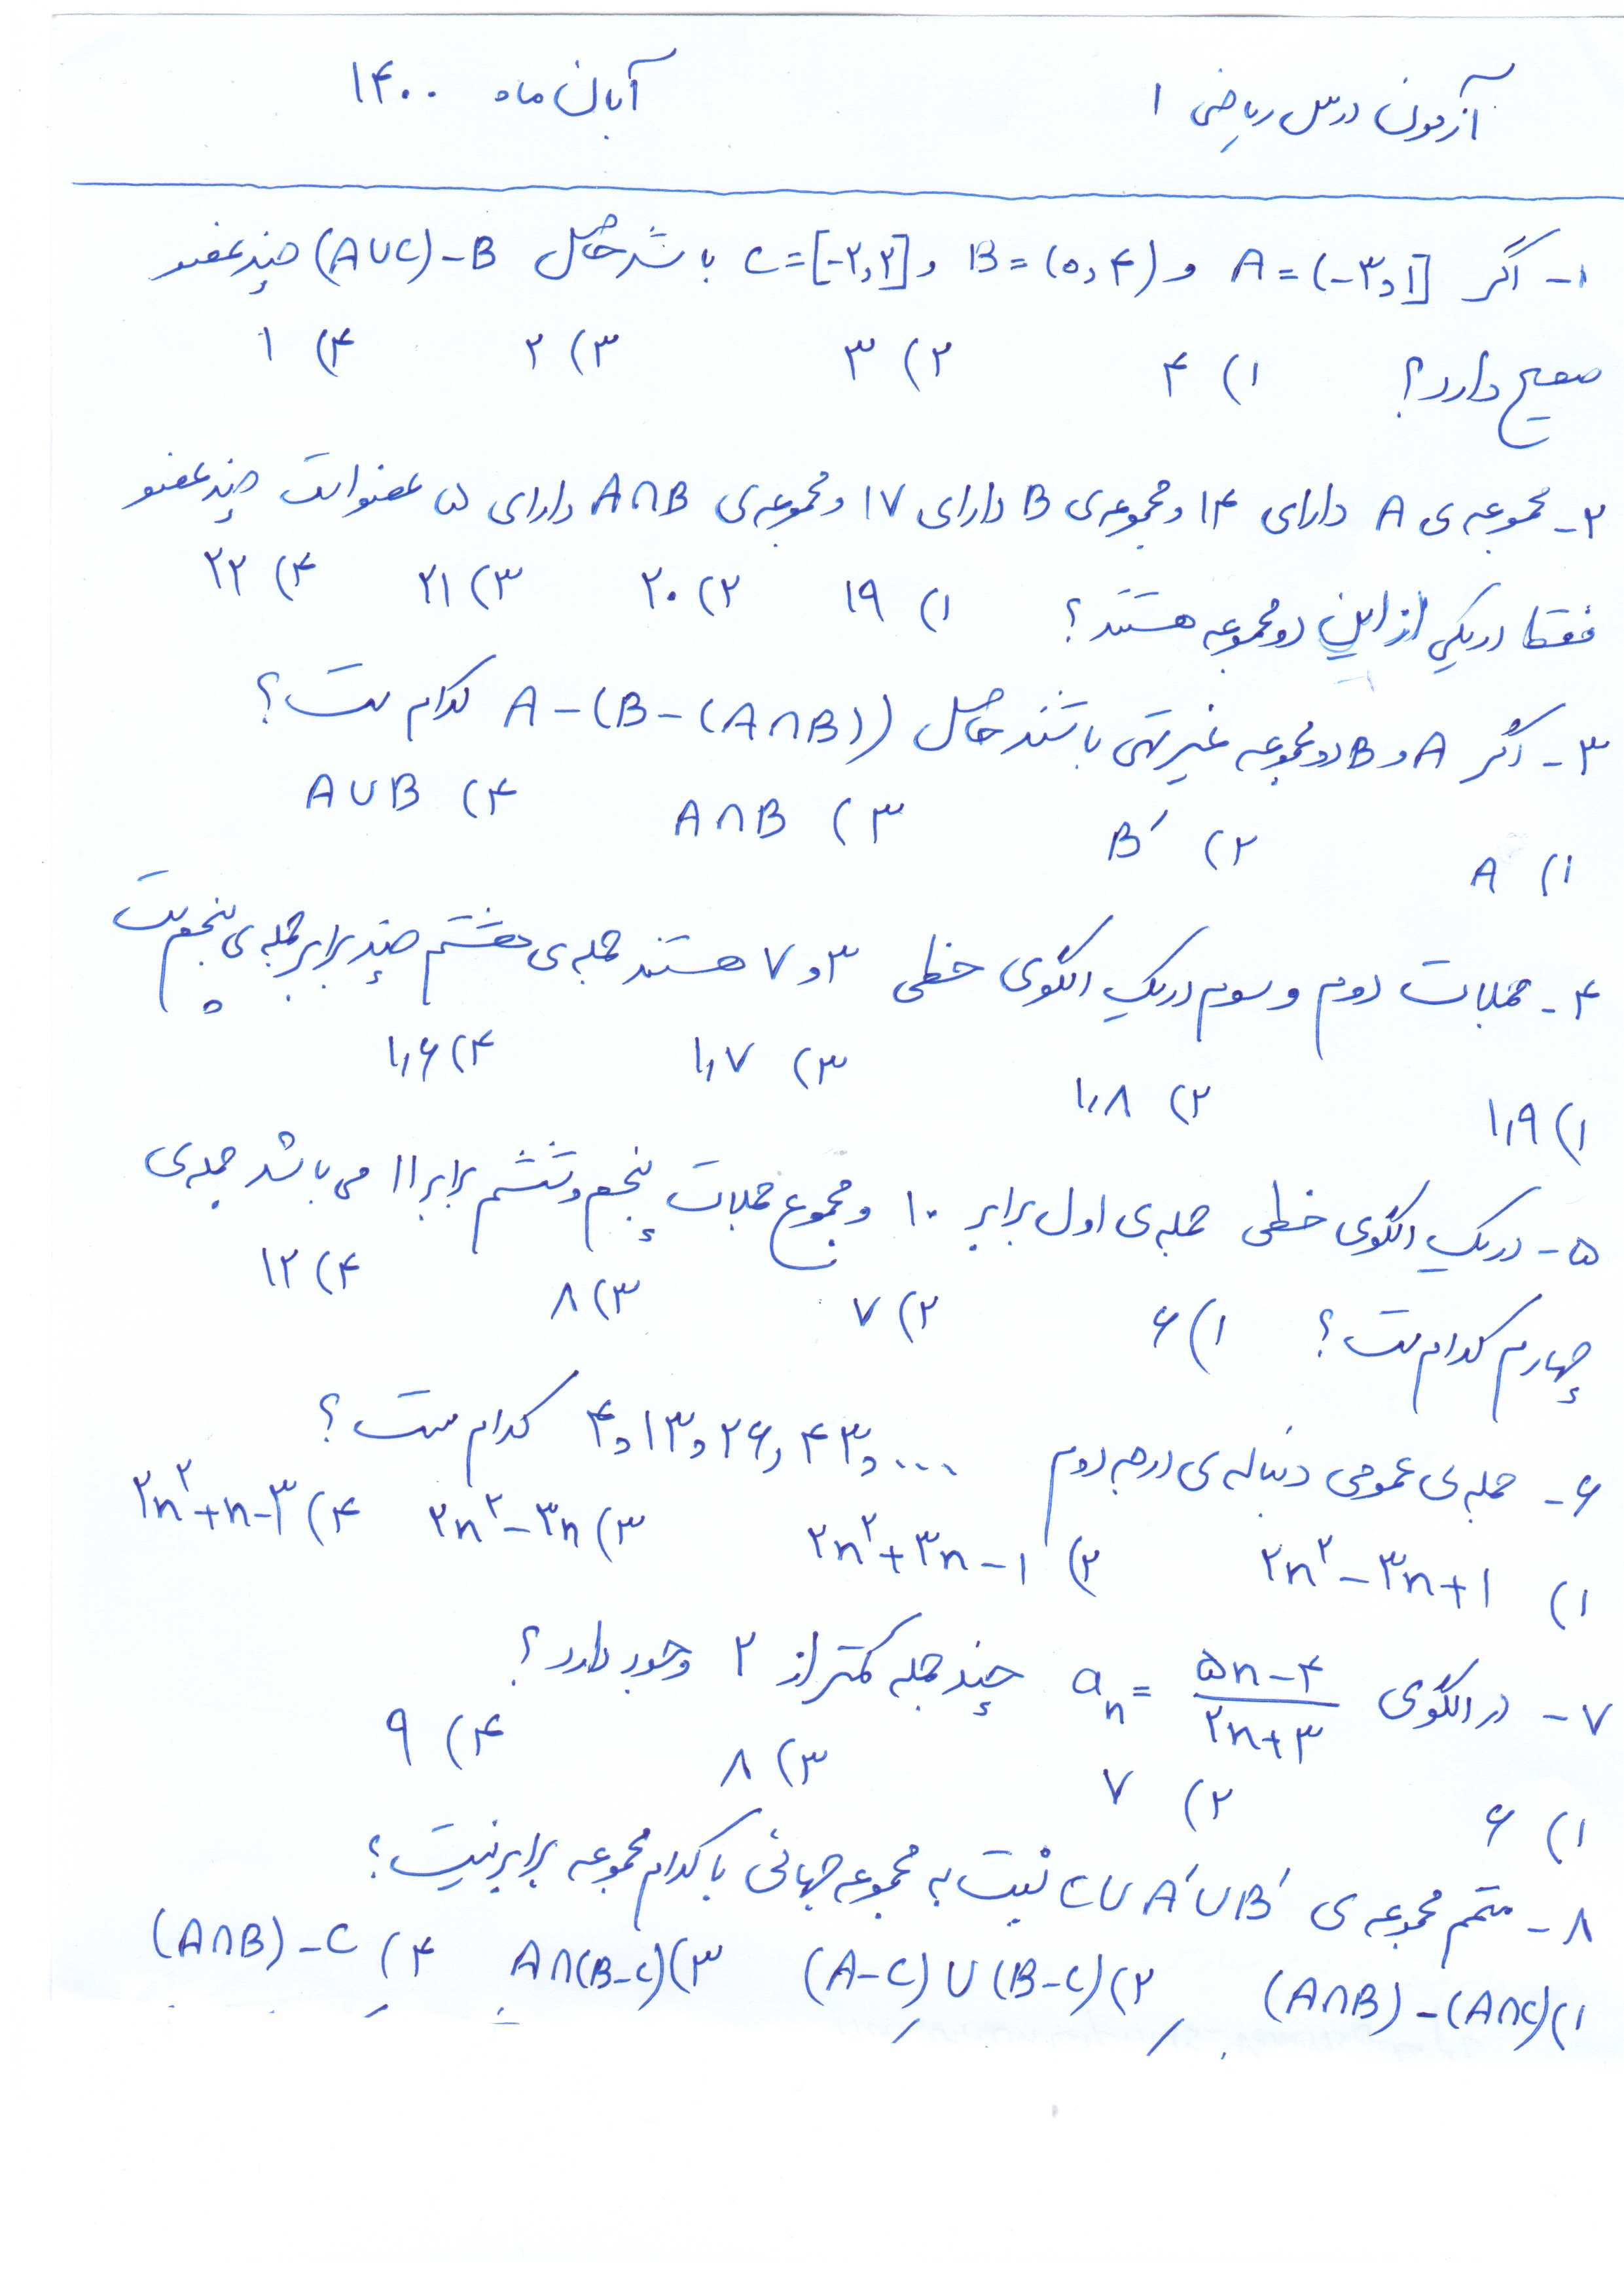 آزمون درس ریاضی ۱ آبان ماه ۱۴۰۰
۱- اگر A = (-۳,۱] و B = (۰,۴) و C = [-۲,۲] باشد حاصل (A∪C)-B چند عضو
صحیح دارد؟ ۱) ۴ ۲) ۳ ۳) ۲ ۴) ۱
۲- مجموعه ی A دارای ۱۴ و مجموعه ی B دارای ۱۷ و مجموعه ی A∩B دارای ۵ عضو است چند عضو
فقط در یکی از این دو مجموعه هستند؟ ۱) ۱۹ ۲) ۲۰ ۳) ۲۱ ۴) ۲۲
۳- اگر A و B دو مجموعه غیر تهی باشند حاصل A-(B-(A∩B)) کدام است؟
۱) A ۲) B′ ۳) A∩B ۴) A∪B
۴- جملات دوم و سوم در یک الگوی خطی ۳ و ۷ هستند جمله ی هشتم چند برابر جمله ی پنجم است
۱) ۱٫۹ ۲) ۱٫۸ ۳) ۱٫۷ ۴) ۱٫۶
۵- در یک الگوی خطی جمله ی اول برابر ۱۰ و مجموع جملات پنجم و ششم برابر ۱۱ می باشد جمله ی
چهارم کدام است؟ ۱) ۶ ۲) ۷ ۳) ۸ ۴) ۱۲
۶- جمله ی عمومی دنباله ی درجه دوم ۴, ۱۳, ۲۶, ۴۳, ... کدام است؟
۱) ۲n²-۳n+۱ ۲) ۲n²+۳n-۱ ۳) ۲n²-۳n ۴) ۲n²+n-۳
۷- در الگوی aₙ = (۵n-۴)/(۲n+۳) چند جمله کمتر از ۲ وجود دارد؟
۱) ۶ ۲) ۷ ۳) ۸ ۴) ۹
۸- متمم مجموعه ی C∪A′∪B′ نسبت به مجموعه جهانی با کدام مجموعه برابر نیست؟
۱) (A∩B)-(A∩C) ۲) (A-C)∪(B-C) ۳) A∩(B-C) ۴) (A∩B)-C